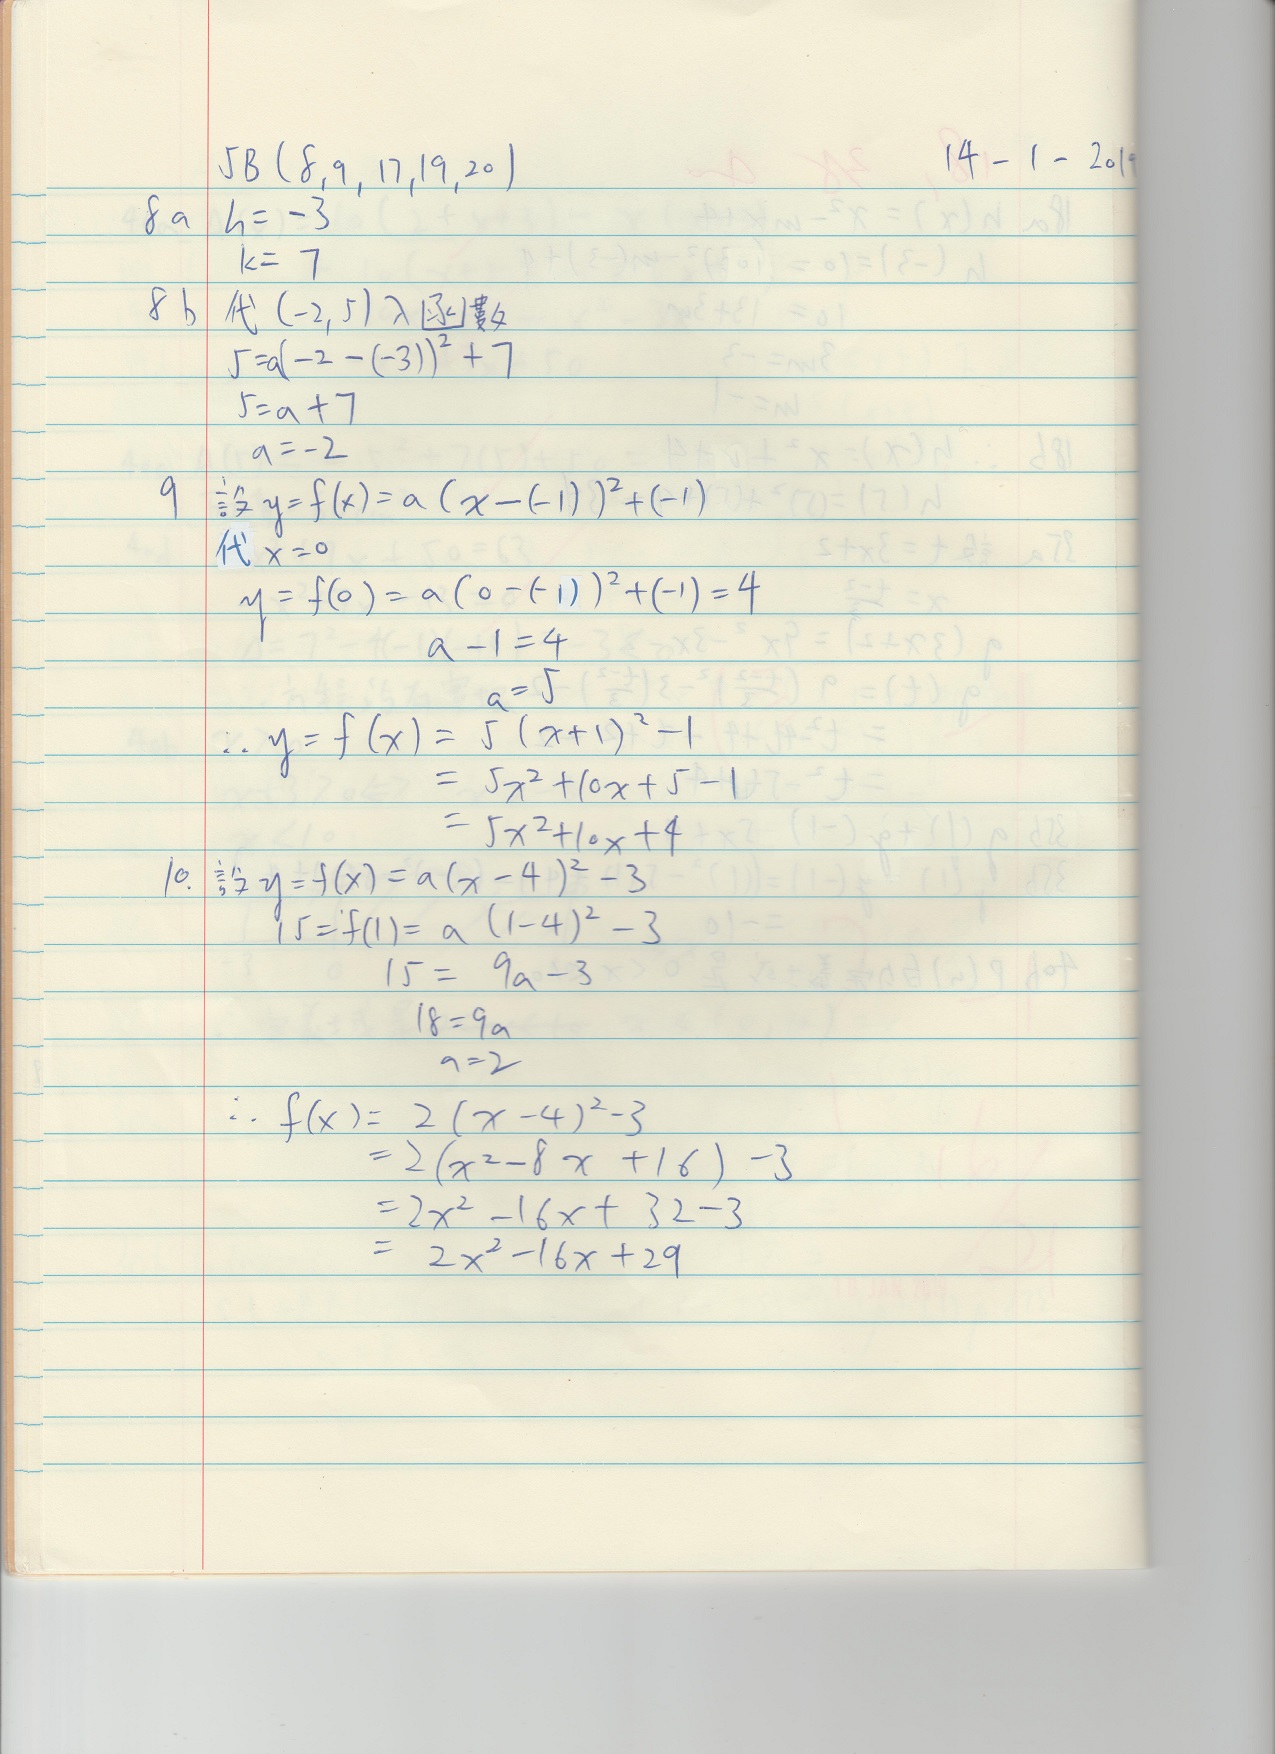 5B (8,9,17,19,20) 14-1-2019
8a h=-3
k=7
8b 代 (-2,5) 入函數
5=a(-2-(-3))²+7
5=a+7
a=-2
9 設 y=f(x)=a(x-(-1))²+(-1)
代 x=0
y=f(0)=a(0-(-1))²+(-1)=4
a-1=4
a=5
∴ y=f(x)=5(x+1)²-1
=5x²+10x+5-1
=5x²+10x+4
10. 設 y=f(x)=a(x-4)²-3
15=f(1)=a(1-4)²-3
15=9a-3
18=9a
a=2
∴ f(x)=2(x-4)²-3
=2(x²-8x+16)-3
=2x²-16x+32-3
=2x²-16x+29